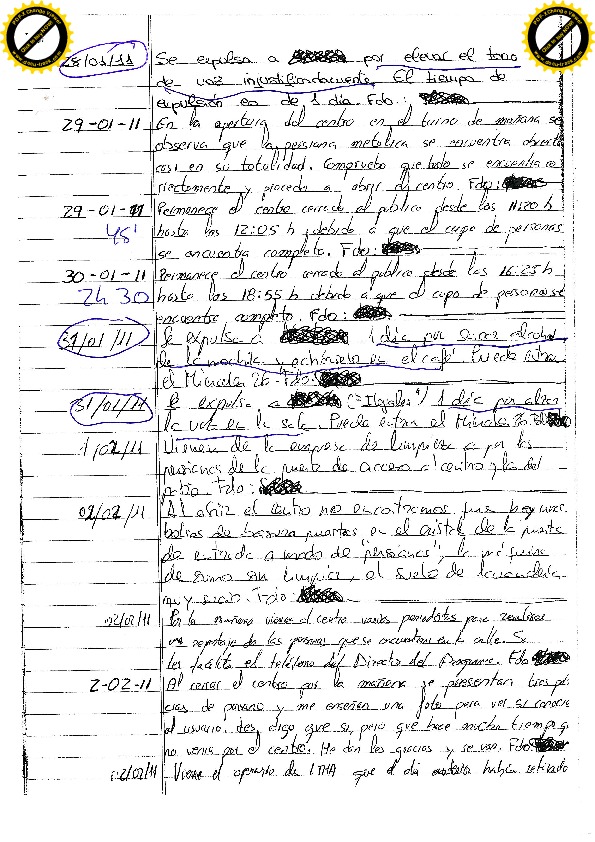 28/01/11 Se expulsa a por elevar el tono
de voz injustificadamente. El tiempo de
expulsión es de 1 día. Fdo:
29-01-11 En la apertura del centro en el turno de mañana se
observa que la persiana metalica se encuentra abierta
casi en su totalidad. Compruebo que todo se encuentra co
rrectamente y procedo a abrir el centro. Fdo:
29-01-11 Permanece el centro cerrado al público desde las 11:20 h
45' hasta las 12:05 h, debido a que el cupo de personas
se encuentra completo. Fdo:
30-01-11 Permanece el centro cerrado al público desde las 16:25 h
2h 30 hasta las 18:55 h debido a que el cupo de personas se
encuentra completo. Fdo:
31/01/11 Se expulsa a 1 día por sacar alcohol
de la mochila y echárselo en el café. Puede entrar
el Miércoles 2b. Fdo:
31/01/11 Se expulsa a ("Ilegales") 1 día por alzar
la voz en la sala. Puede entrar el Miércoles 2b. Fdo
1/02/11 Vienen de la empresa de limpieza a por las
persianas de la puerta de acceso al centro y las del
patio. Fdo:
02/02/11 Al abrir el centro nos encontramos que hay unas
bolsas de basura puestas en el cristal de la puerta
de entrada a modo de "persianas", la máquina
de zumo sin limpiar, el suelo de lavandería
muy sucio. Fdo:
02/02/11 Por la mañana vienen al centro varios periodistas para realizar
un reportaje de las personas que se encuentran en la calle. Se
les facilita el teléfono del Director del Programa. Fdo
2-02-11 Al cerrar el centro por la mañana se presentan tres poli
cias de paisano y me enseñan una foto para ver si conocia
al usuario. Les digo que si, pero que hace mucho tiempo q
no venia por el centro. Me dan las gracias y se van. Fdo:
2/02/11 Viene el operario de que el día habían retirado